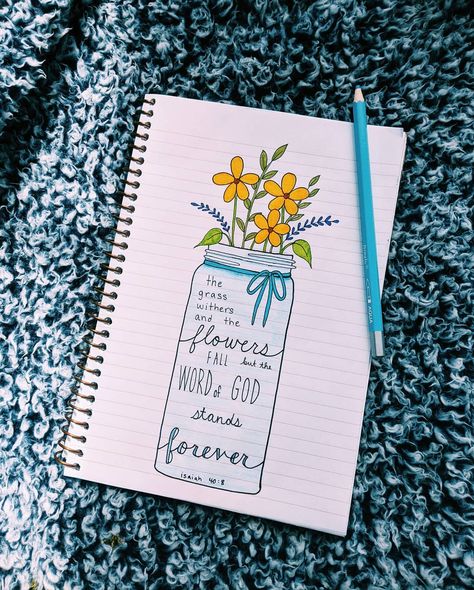 the
grass
withers
and the
flowers
FALL but the
WORD of GOD
stands
forever
isaiah 40:8